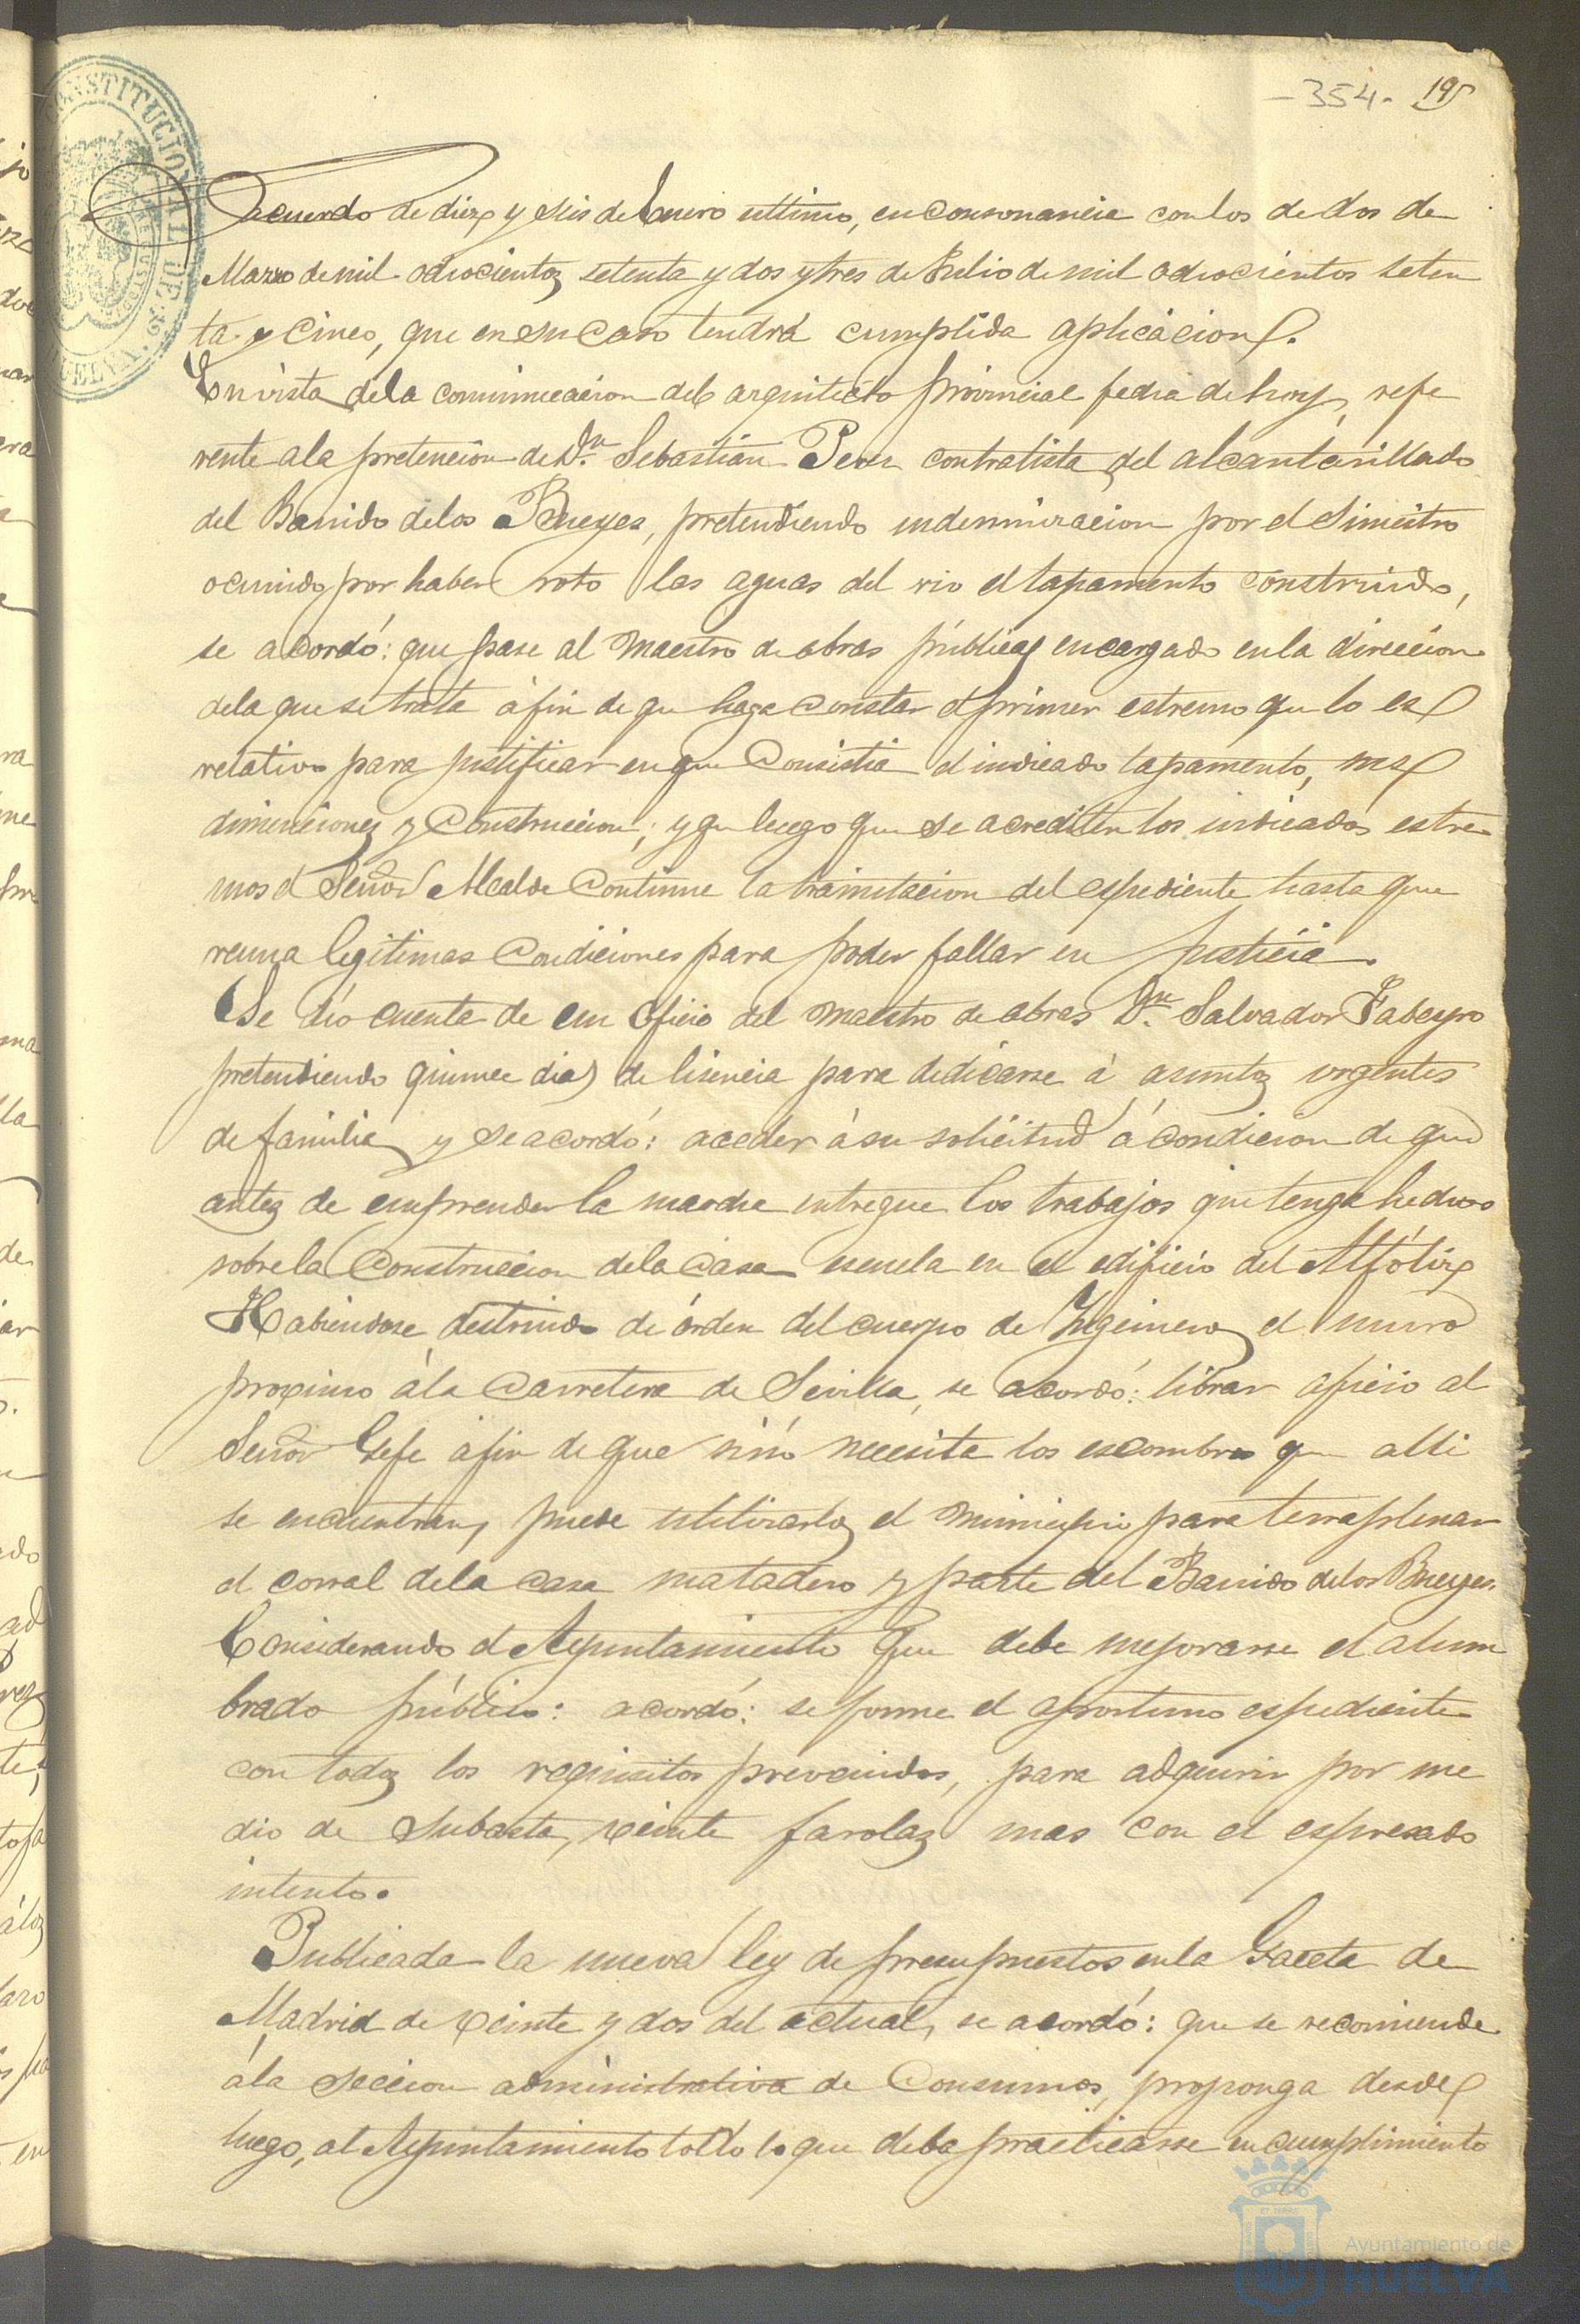 -354- 195
CONSTITUCIONAL DE
HUELVA
acuerdo de diez y seis de Enero ultimo, en consonancia con los de dos de
Marzo de mil ochocientos setenta y dos y tres de Julio de mil ochocientos seten
ta y cinco, que en su caso tendrá cumplida aplicacion.
En vista de la comunicacion del arquitecto provincial fecha de hoy, refe
rente a la pretencion de Dn. Sebastian contratista del alcantarillado
del Barrido de los Bueyes, pretendiendo indemnizacion por el siniestro
ocurrido por haber roto las aguas del rio el tapamento construido,
se acordó: que pase al Maestro de obras públicas encargado en la direccion
de la que se trata á fin de que haga constar el primer estremo que lo es
relativo para justificar en que consistia el indicado tapamento, sus
dimenciones y construccion; y que luego que se acrediten los indicados estre
mos el Señor Alcalde continue la tramitacion del espediente hasta que
reuna legitimas condiciones para poder fallar en justicia.
Se dió cuenta de un oficio del Maestro de obras Dn. Salvador Tabeyro
pretendiendo quince dias de lisencia para dedicarse á asuntos urgentes
de familia y se acordó: acceder á su solicitud á condicion de que
antes de emprender la marcha entregue los trabajos que tenga hechos
sobre la construccion de la casa escuela en el edificio del Alfóliz
Habiendose destruido de órden del cuerpo de Ingenieros el muro
proximo á la carretera de Sevilla, se acordó: librar oficio al
Señor Gefe á fin de que sinó necesita los escombros que alli
se encuentran, puede utilizarlos el municipio para terraplenar
el corral de la casa matadero y parte del Barrido de los Bueyes.
Considerando el Ayuntamiento que debe mejorarse el alum
brado público: acordó: se forme el oportuno espediente
con todos los requisitos prevenidos, para adquirir por me
dio de subasta, veinte farolas mas con el espresado
intento.
Publicada la nueva ley de presupuestos en la Gaceta de
Madrid de veinte y dos del actual, se acordó: que se recomiende
á la seccion administrativa de Consumos, proponga desde
luego, al Ayuntamiento todo lo que deba practicarse en cumplimiento
Ayuntamiento de
HUELVA